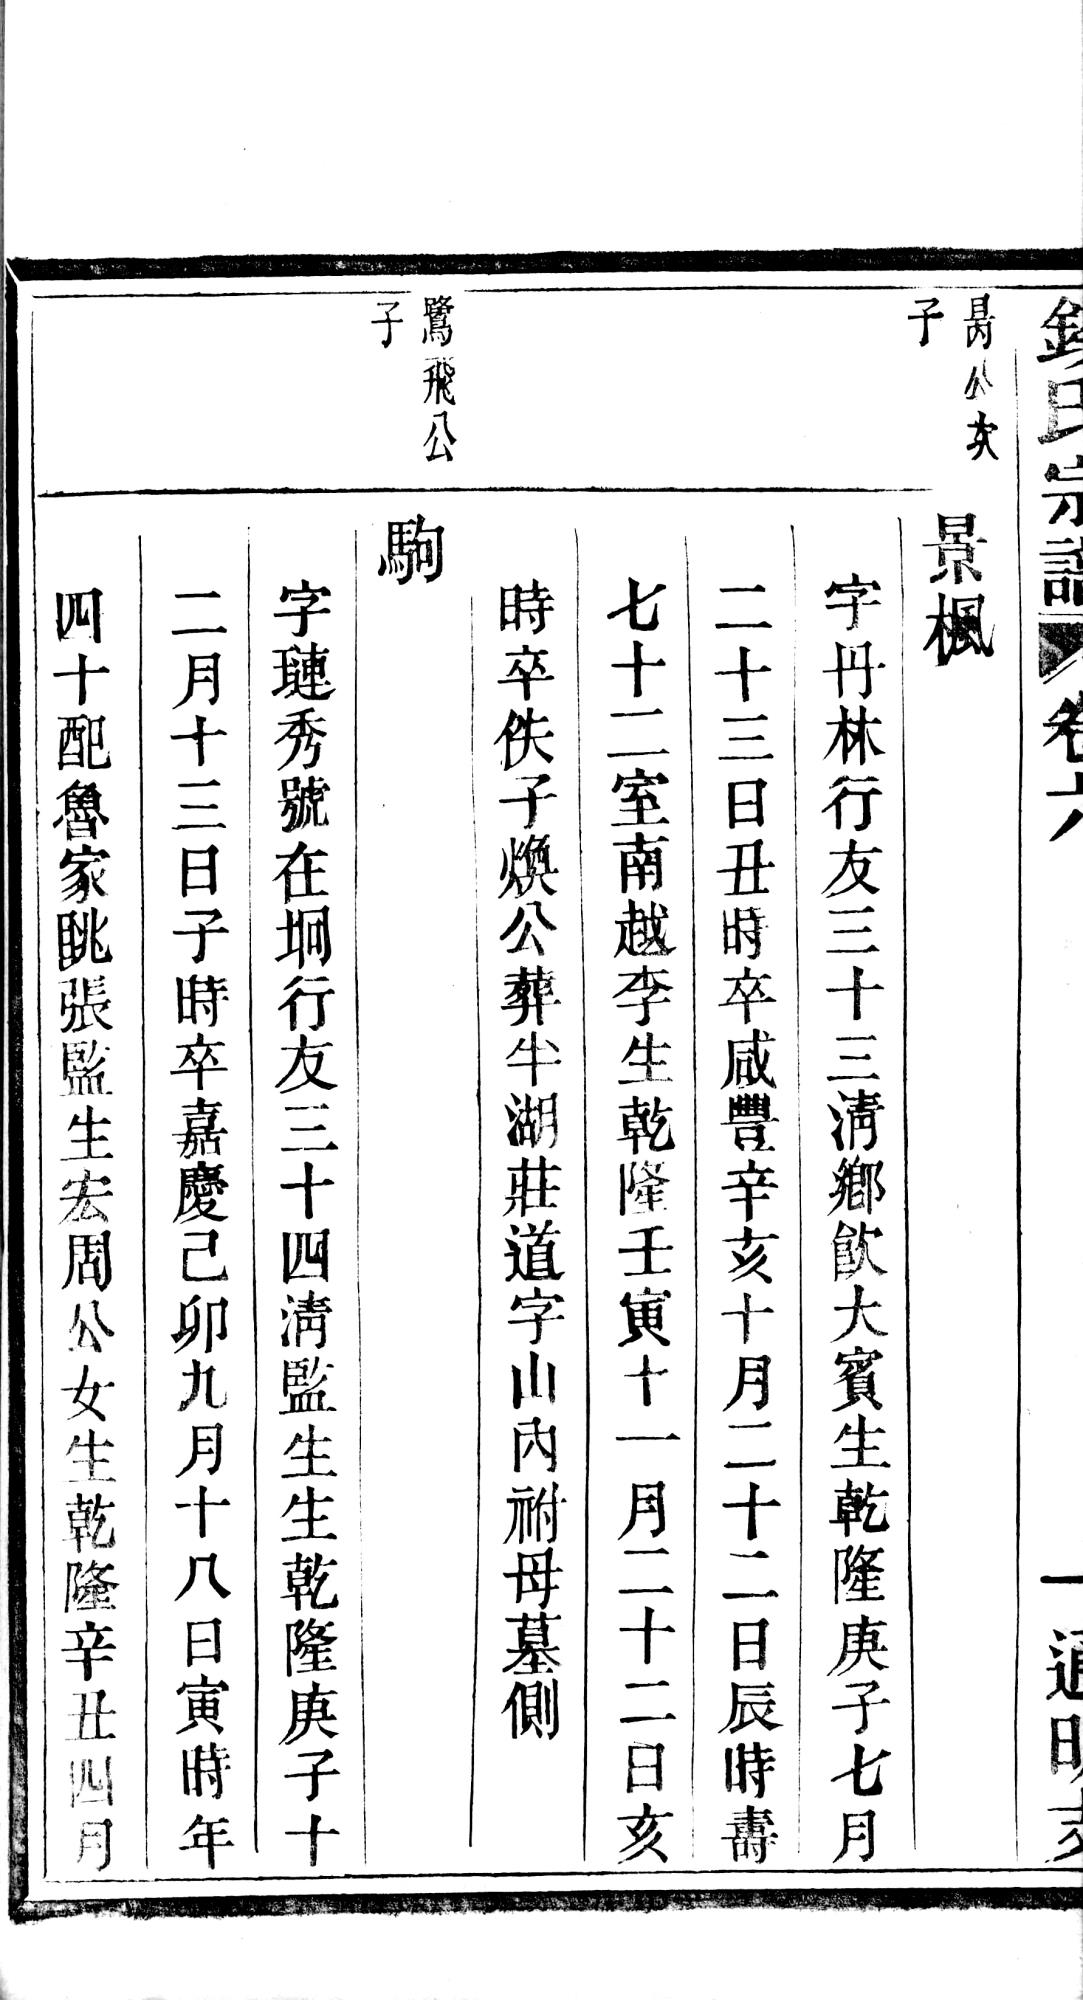 氏宗譜 卷六 一 通明支
昺公次
子
景楓
字丹林行友三十三淸鄉飮大賓生乾隆庚子七月
二十三日丑時卒咸豐辛亥十月二十二日辰時壽
七十二室南越李生乾隆壬寅十一月二十二日亥
時卒佚子煥公葬半湖莊道字山內祔母墓側
鷺飛公
子
駒
字璉秀號在坰行友三十四淸監生生乾隆庚子十
二月十三日子時卒嘉慶己卯九月十八日寅時年
四十配魯家眺張監生宏周公女生乾隆辛丑四月